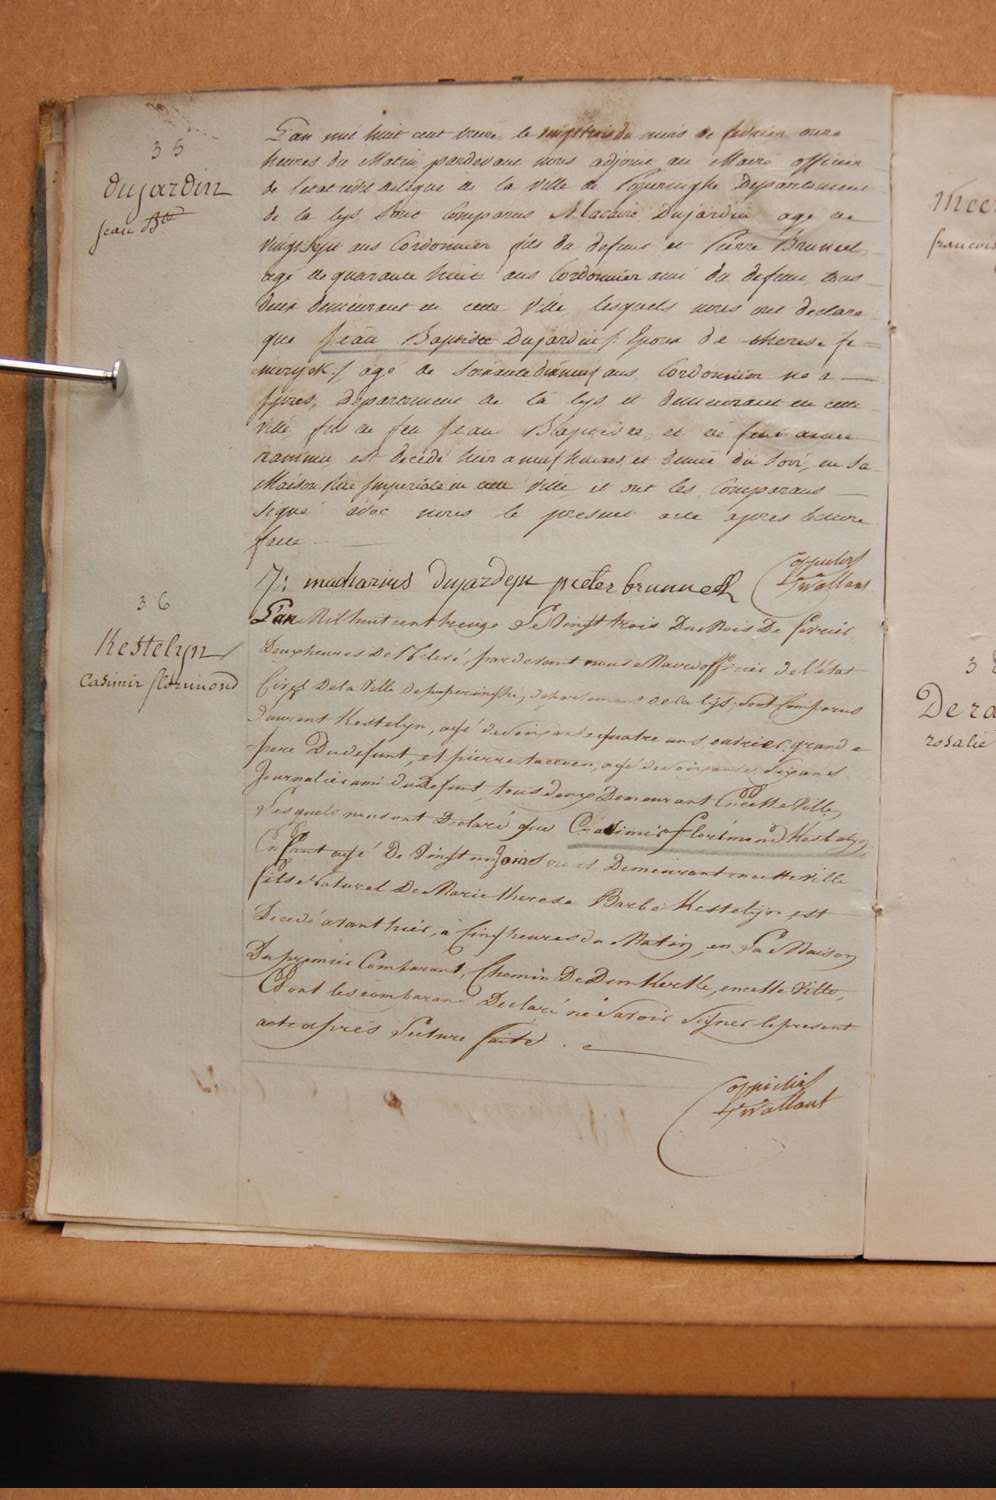 35
dujardin
jean Bte
L'an mil huit cent treize le vingt trois du mois de fevrier onze
heures du Matin pardevant nous adjoint au Maire officier
de l'etat civil delegué de la Ville de Poperinghe Departement
de la lys sont Comparus Macaire Dujardin agé de
vingt sept ans Cordonnier fils du defunt et Pierre Bruneel
agé de quarante huit ans Cordonnier ami du defunt tous
deux demeurant en cette Ville lesquels nous ont declaré
que Jean Baptiste Dujardin /: Epoux de therese
agé de soixante dixneuf ans Cordonnier né a
ypres, departement de la lys et demeurant en cette
Ville fils de feu Jean Baptiste et de feue anne
est decedé hier a neuf heures et demie du soir, en sa
Maison Rue Imperiale en cette Ville et ont les Comparans
signé avec nous le present acte apres lecture
faite
J: macharius dujardyn pieter bruneel
36
Kestelyn
Casimir florimond
L'an Mil huit cent treize Le Vingt trois Du Mois De fevrier
Deux heures De Relevé, pardevant nous Maire officier De L'etat
Civil De la Ville de poperinghe, departement de la lys, sont Comparus
Laurent Kestelyn, agé de soixante quatre ans, ouvrier, grand
pere Du defunt, et pierre agé de soixante Six ans
Journalier ami du Defunt, tous deux Demeurant En cette Ville,
Lesquels nous ont Declaré que Casimir florimond Kestelyn,
Enfant agé De Vingt un Jours né et Demeurant en cette Ville
fils Naturel De Marie therese Barbe Kestelyn est
Decedé avant hier, à Cinq heures du Matin, en La Maison
Du premier Comparant, Chemin De Dunkerke, en cette Ville,
Et ont les comparans Declaré ne Savoir Signer le present
acte après Lecture faite.
Wallaert
3
rosalie